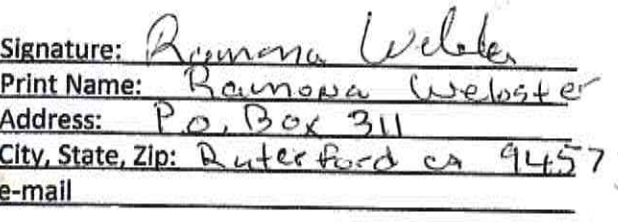 Signature: Ramona Webster
Print Name: Ramona Webster
Address: P.O. Box 311
City, State, Zip: Ruterford ca 9457
e-mail